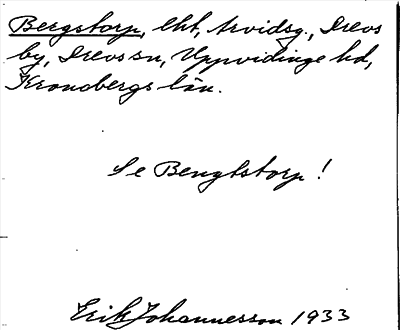 Bergstorp, lht, Arvidsg., Drevs
by, Drevs sn, Uppvidinge hd,
Kronobergs län.
Se Bengtstorp!
Erik Johannesson 1933